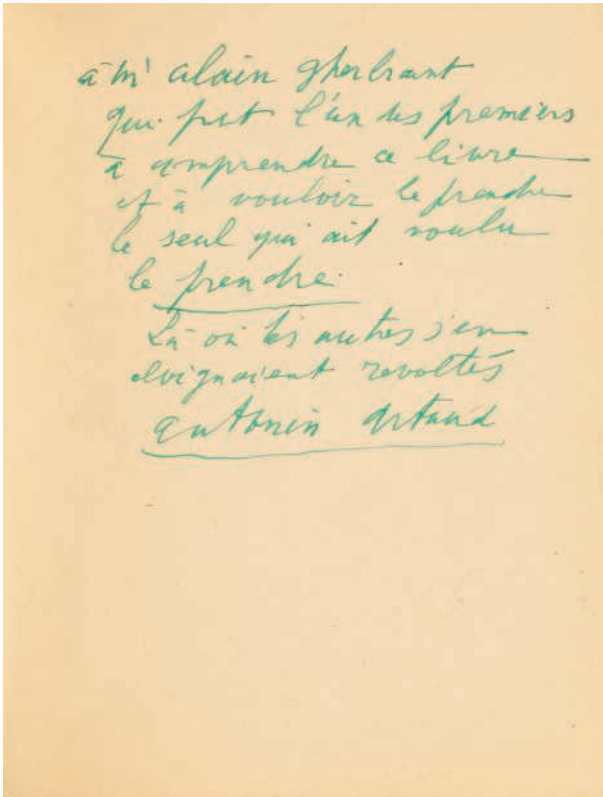 à Mr alain gherbrant
qui fut l'un des premiers
à comprendre ce livre
et à vouloir le prendre
le seul qui ait voulu
le prendre.
Là où les autres s'en
eloignaient revoltés
antonin artaud